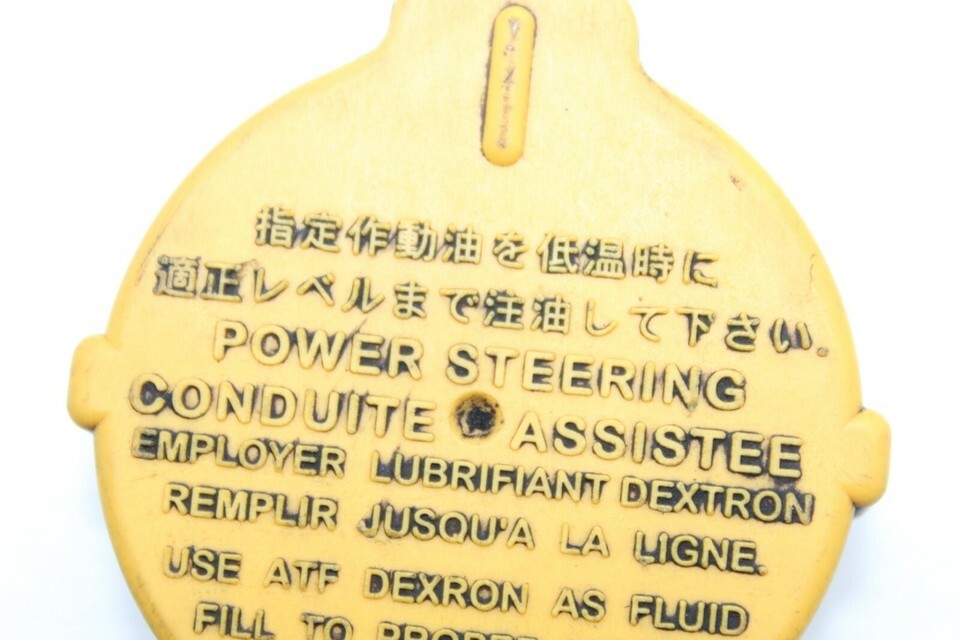 指定作動油を低温時に
適正レベルまで注油して下さい。
POWER STEERING
CONDUITE ASSISTEE
EMPLOYER LUBRIFIANT DEXTRON
REMPLIR JUSQU'A LA LIGNE.
USE ATF DEXRON AS FLUID
FILL TO PROPER